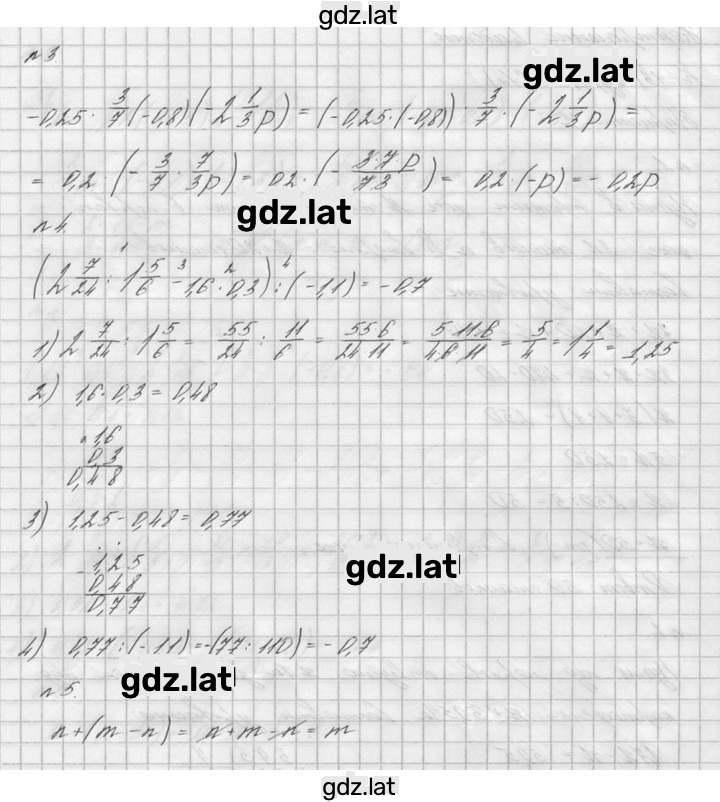 gdz.lat
n 3.
gdz.lat
-0,25 · 3/7 (-0,8) (-2 1/3 p) = (-0,25 · (-0,8)) · 3/7 · (-2 1/3 p) =
= 0,2 · (- 3/7 · 7/3p) = 0,2 · (- 3·7p/7·3) = 0,2 · (-p) = -0,2p
gdz.lat
n 4.
(2 7/24 : 1 5/6 - 1,6 · 0,3) : (-1,1) = -0,7
1) 2 7/24 : 1 5/6 = 55/24 : 11/6 = 55·6/24·11 = 5·11·6/4·6·11 = 5/4 = 1 1/4 = 1,25
2) 1,6 · 0,3 = 0,48
1,6
0,3
0,48
3) 1,25 - 0,48 = 0,77
- 1,25
0,48
0,77
gdz.lat
4) 0,77 : (-1,1) = -(77 : 110) = -0,7
gdz.lat
n 5.
n + (m - n) = n + m - n = m
gdz.lat